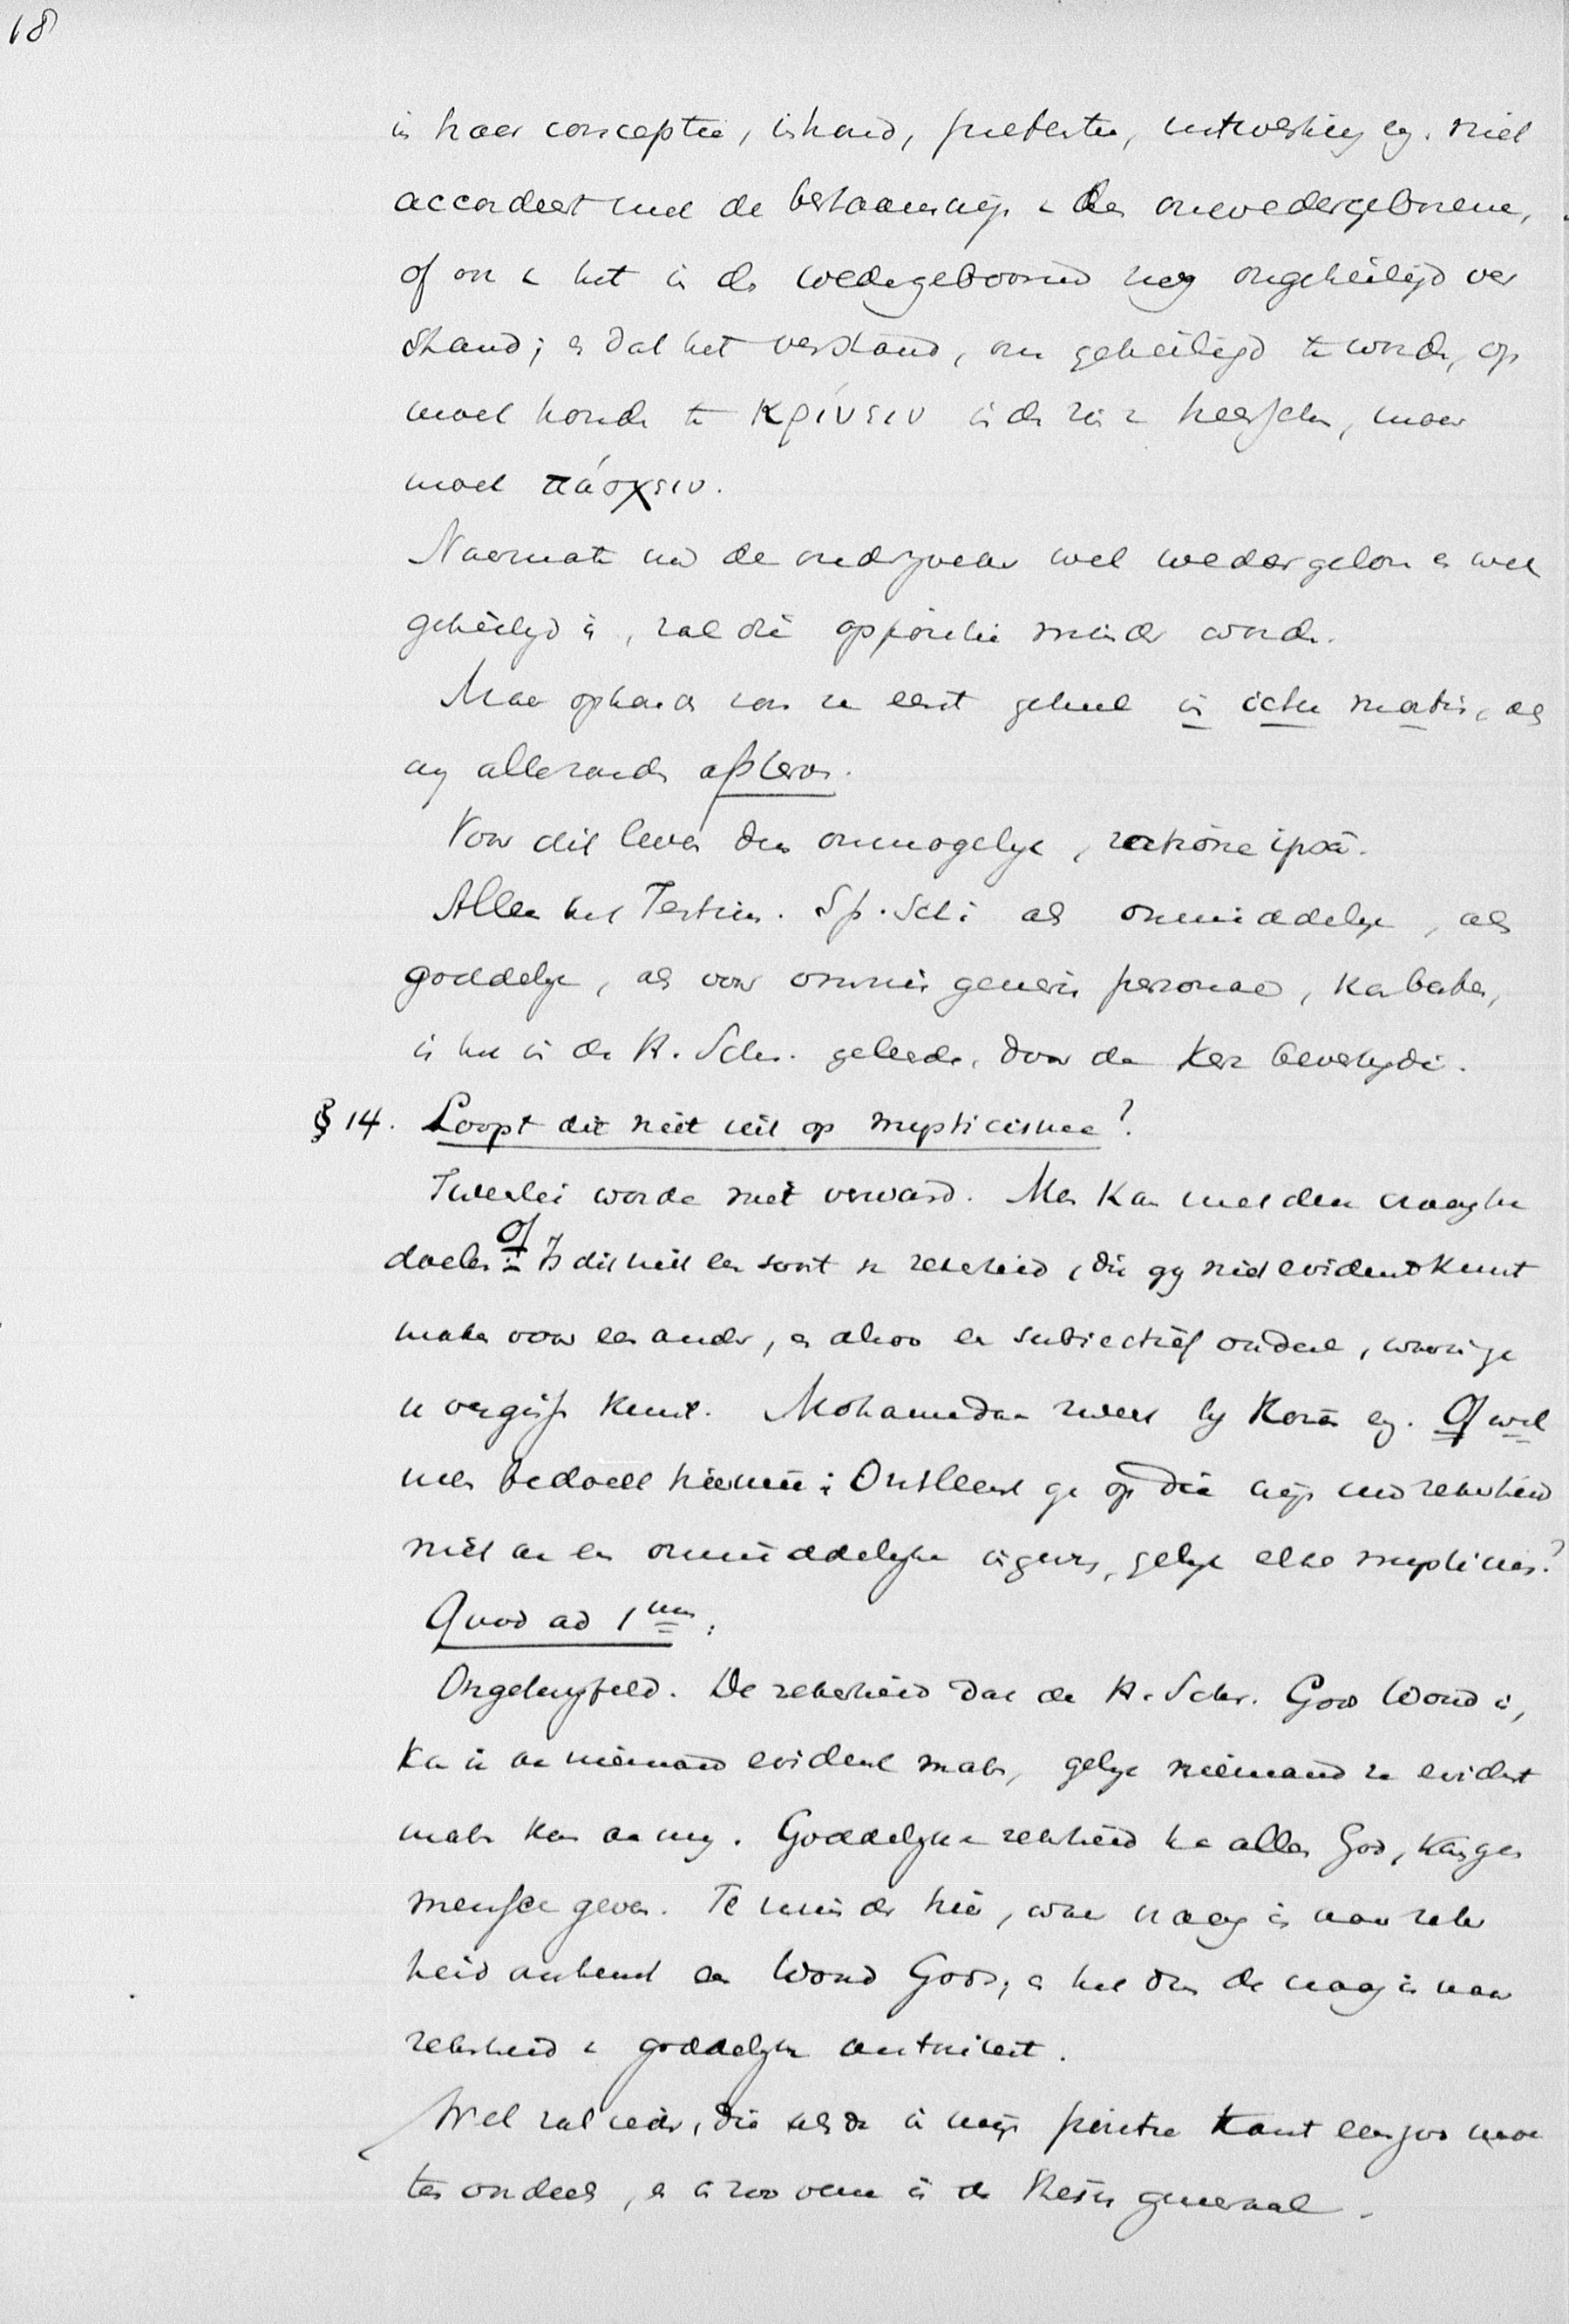 18
in haar conceptie, inhoud, pretentie, uitwerking eg. niet
accordeert met de bestaanswijs v. den onwedergeborene,
of on v het in de wedergeboorne nog ongeheiligd ver
stand; en dat het verstand, om geheiligd te worden, op
moet houden te κρίνειν in den zin v heerschen, maar
moet πάσχειν.
Naarmate nu de onderzoeker wel wedergeboren en wel
geheiligd is, zal die oppositie minder worden.
Maar ophouden eerst geheel in ictu mortis, als
wij allerzonde afsterven.
Voor dit leven dus onmogelijk, ratione ipsa.
Alleen het Testim. Sp. Scti als onmiddelijk, als
goddelijk, als voor omnis generis personae, kan baten,
is het in de H. Schr. geleerde, door de Kerk beleden.
§ 14. Loopt dit niet uit op mysticisme?
Tweeërlei worde niet verward. Men kan met deze vraag be
doelen: Of Is dit niet een soort v zekerheid, die gij niet evident kunt
maken voor een ander, en alzoo een subjectief oordeel, waarin ge
u vergissen kunt. Mohamedaan zweert bij Koran eg. Of wel
men bedoelt hiermee: Ontleent ge op die wijs uw zekerheid
niet aan een onmiddelijke ingeving, gelijk elke mysticus?
Quod ad 1um:
Ongetwijfeld. De zekerheid dat de H. Schr. Gods Woord is,
kan ik aan niemand evident maken, gelijk niemand ze evident
maken kan aan mij. Goddelijke zekerheid kan alleen God, kan geen
mensch geven. Te minder hier, waar vraag is naar zeker
heid omtrent een Woord Gods, en het dus de vraag is naar
zekerheid v goddelijke autoriteit.
Wel zal ieder, die met de in mijn positie komt eenzoo moe
ten oordeelen, en in zoo verre is de thesis generaal.